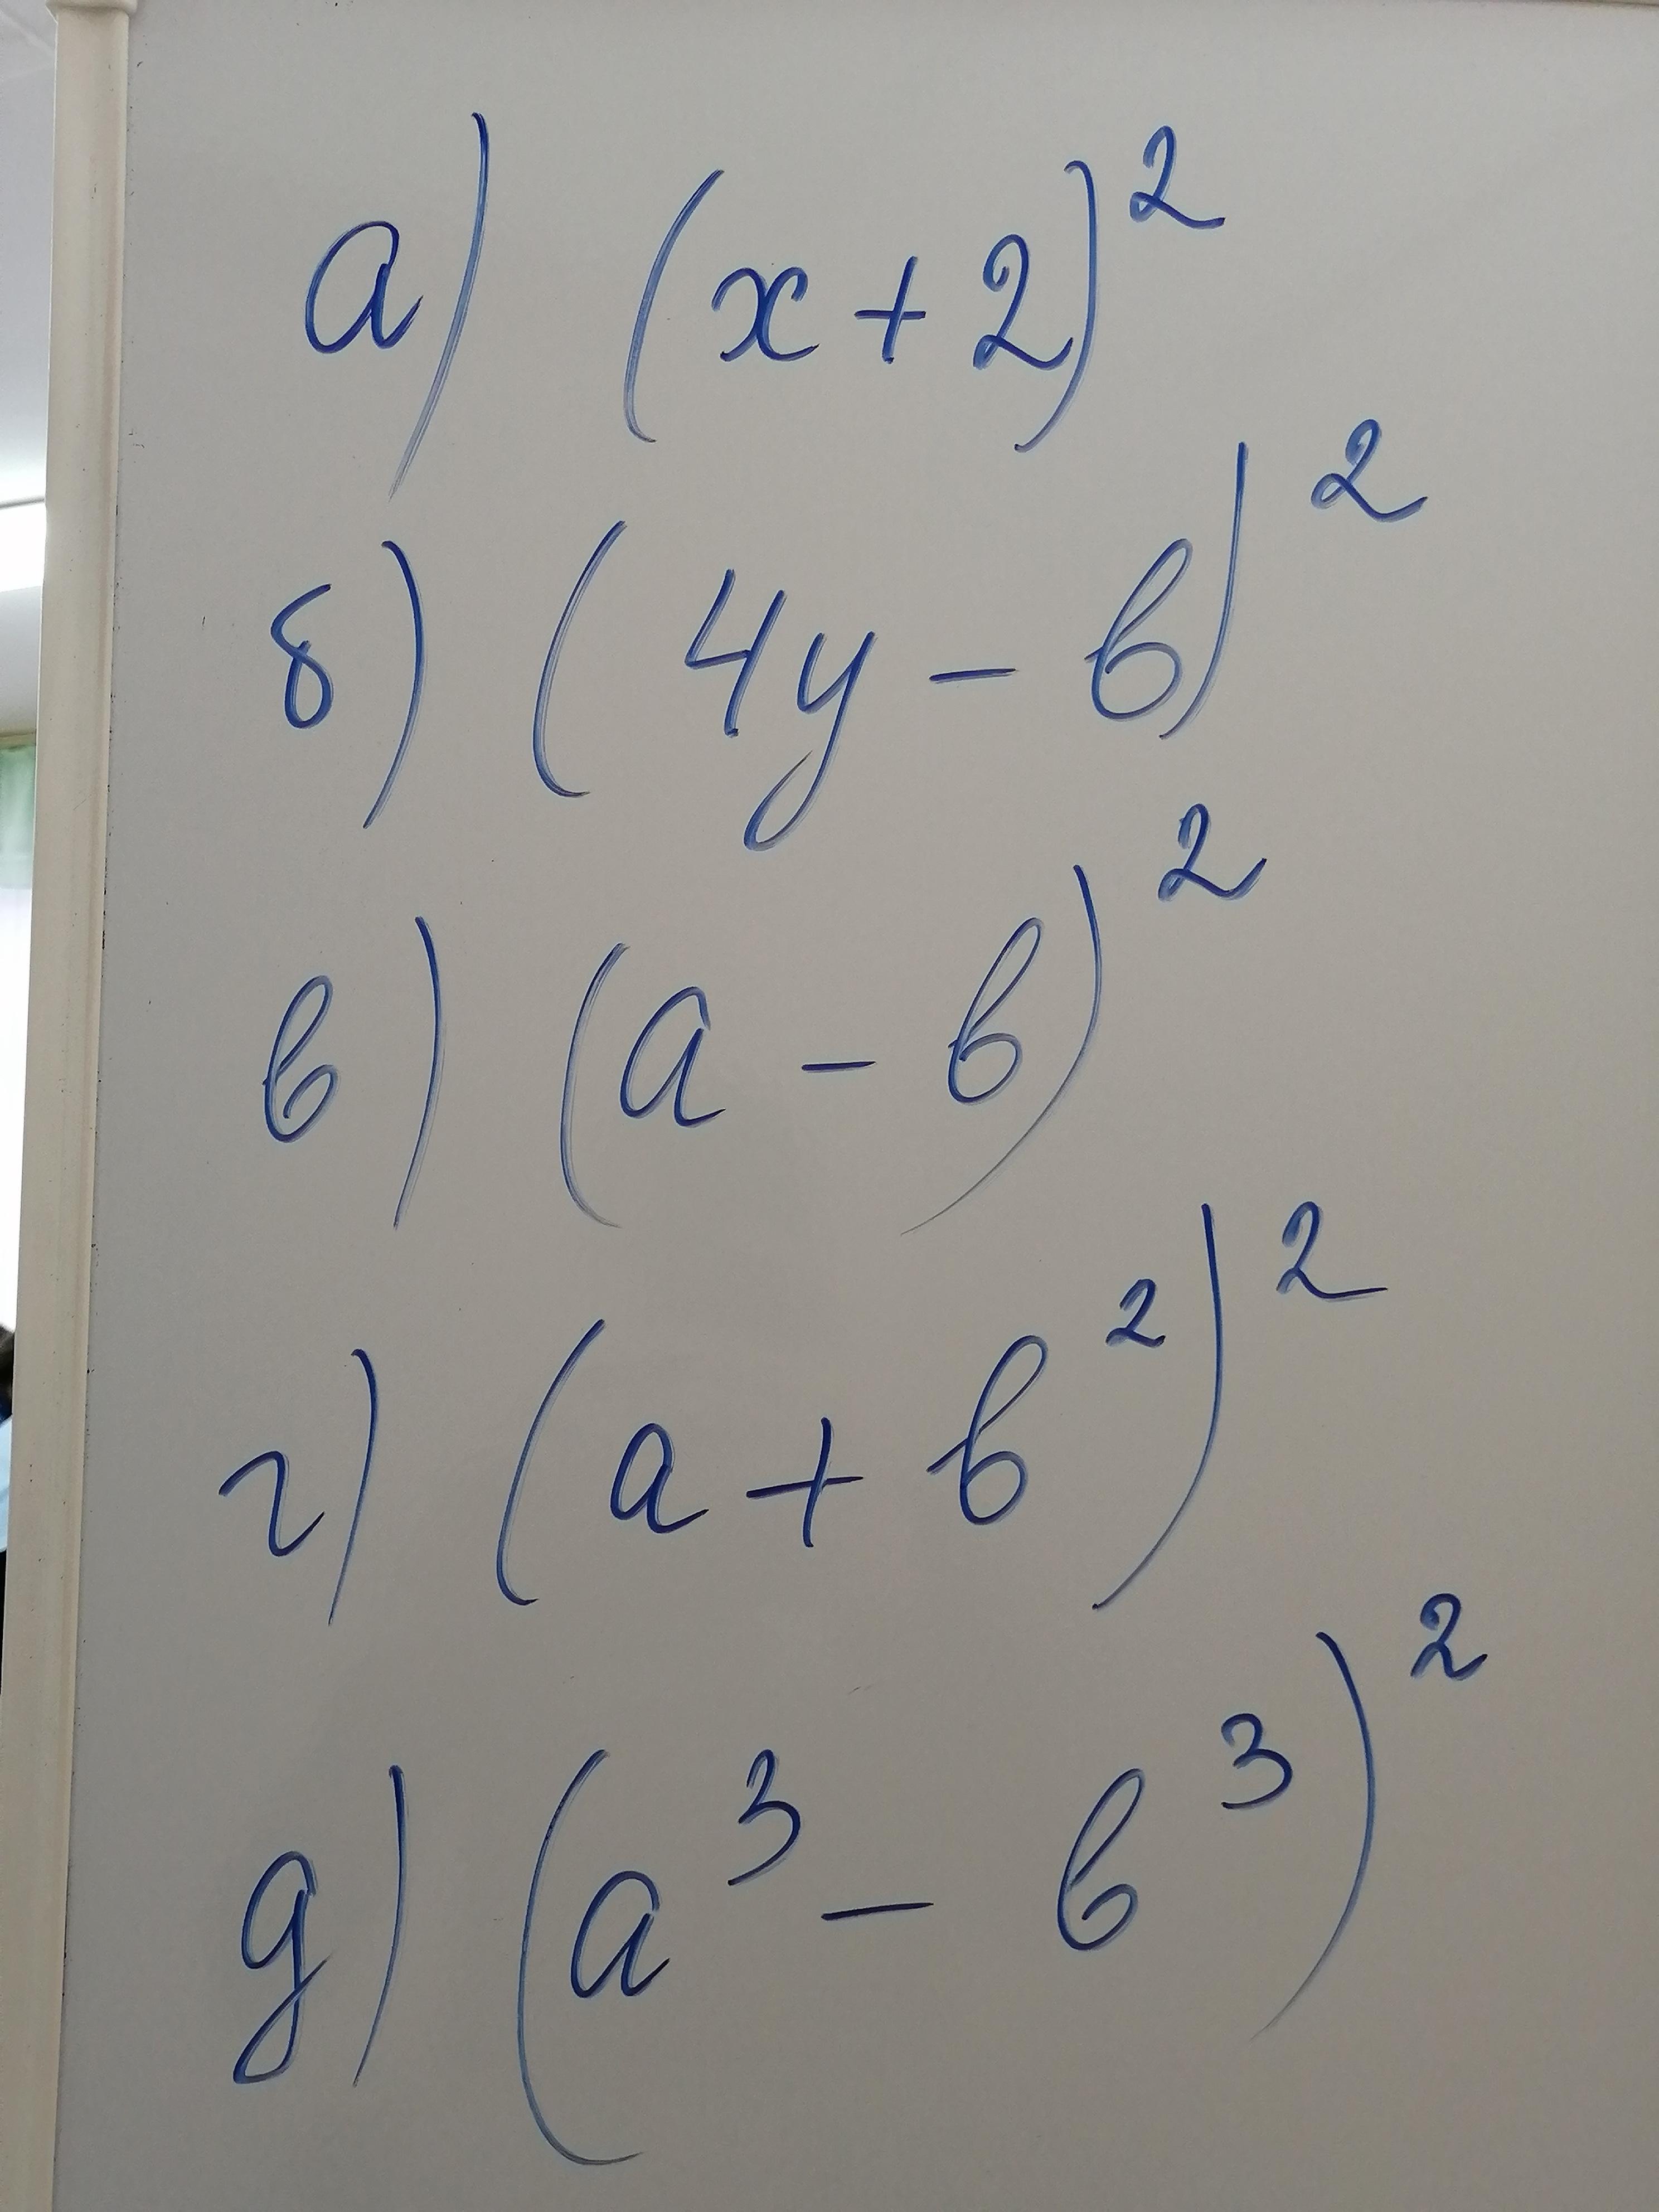 а) (x+2)²
б) (4y - b)²
в) (a - b)²
г) (a + b²)²
д) (a³ - b³)²